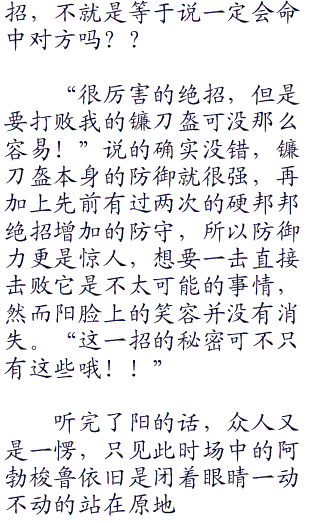 招，不就是等于说一定会命
中对方吗？？
“很厉害的绝招，但是
要打败我的镰刀盔可没那么
容易！”说的确实没错，镰
刀盔本身的防御就很强，再
加上先前有过两次的硬邦邦
绝招增加的防守，所以防御
力更是惊人，想要一击直接
击败它是不太可能的事情，
然而阳脸上的笑容并没有消
失。“这一招的秘密可不只
有这些哦！！”
听完了阳的话，众人又
是一愣，只见此时场中的阿
勃梭鲁依旧是闭着眼睛一动
不动的站在原地